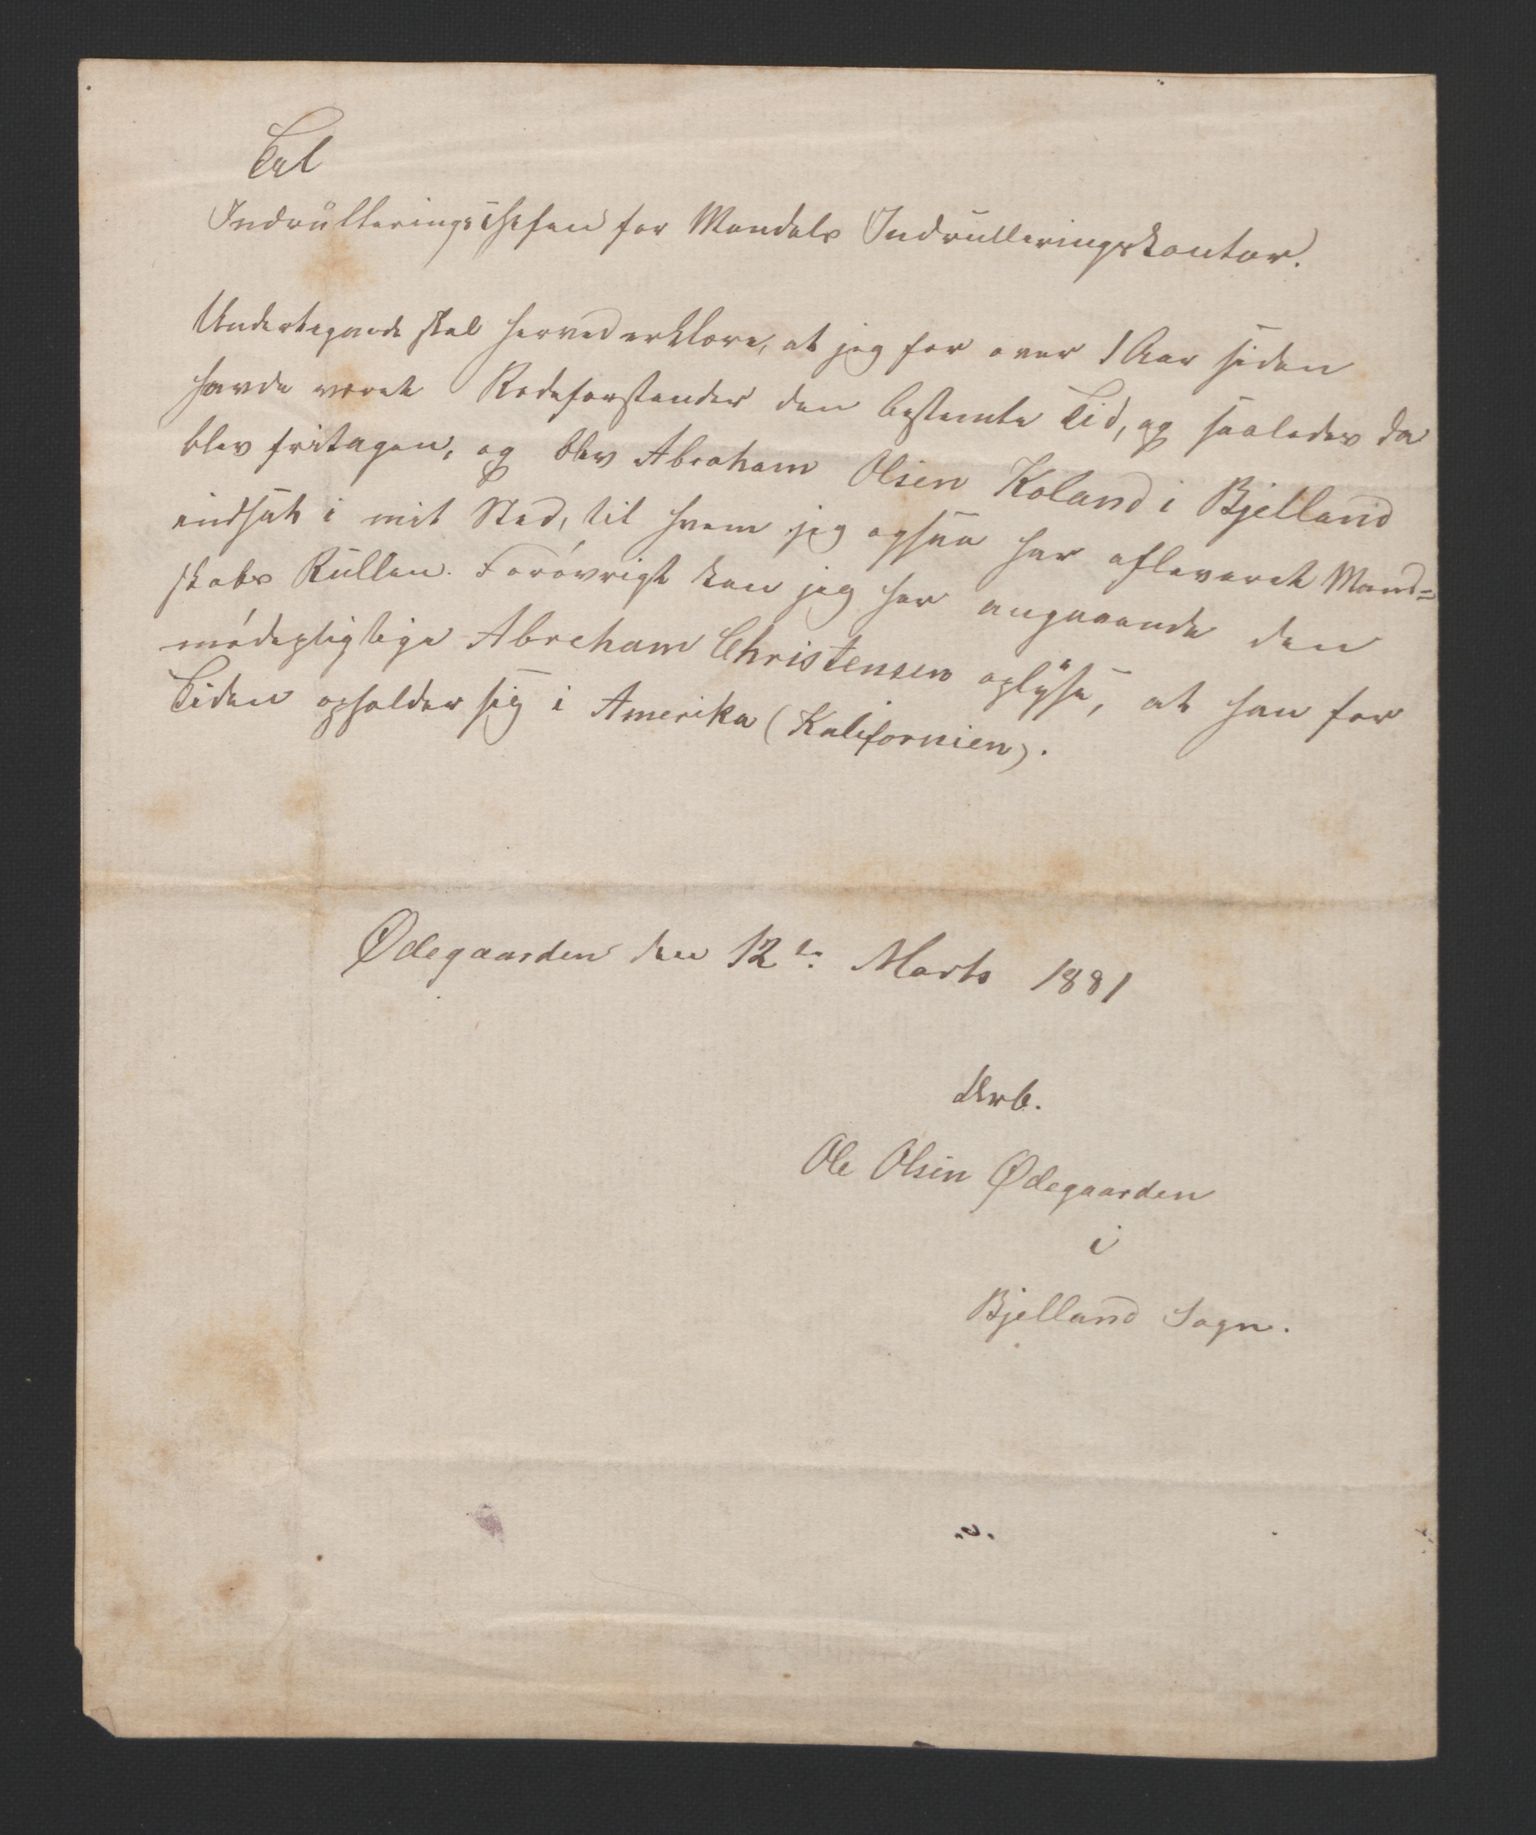 Til
Indrulleringschefen for Mandals Indrulleringskontor.
Undertegnede skal herved erklære, at jeg for over 1 Aar siden
havde været Rodeforstander den bestemte Tid, og saaledes da
blev fritagen, og blev Abraham Olsen Koland i Bjelland
indsat i mit Sted, til hvem jeg ogsaa har afleveret Mand=
skabs Rullen. Forøvrigt kan jeg her angaaende den
mødepligtige Abraham Christensen oplyse, at han for
Tiden opholder sig i Amerika (Kalifornien).
Ødegaarden den 12te Marts 1881
Ærb.
Ole Olsen Ødegaarden
i
Bjelland Sogn.